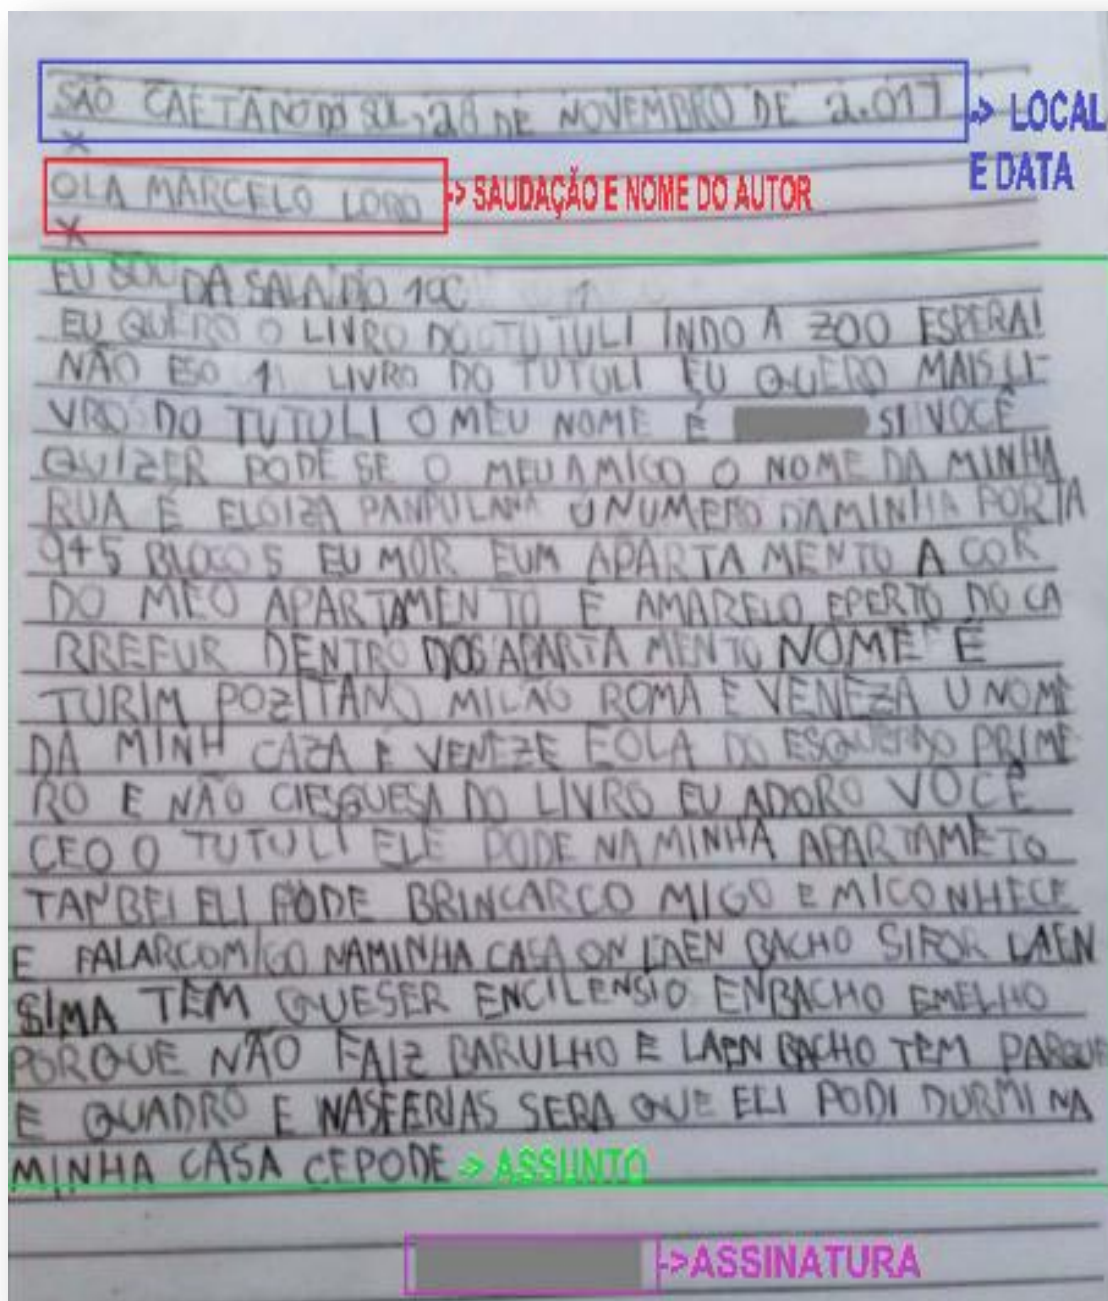 SÃO CAETANO DO SUL, 28 DE NOVEMBRO DE 2.017 -> LOCAL E DATA
X
OLA MARCELO LORO -> SAUDAÇÃO E NOME DO AUTOR
X
EU SOU DA SALA DO 1ºC
EU QUERO O LIVRO DO TUTULI INDO A ZOO ESPERAI
NÃO ESO 1 LIVRO DO TUTULI EU QUERO MAIS LI-
VROS DO TUTULI O MEU NOME É SI VOCÊ
QUIZER PODE SE O MEU AMIGO O NOME DA MINHA
RUA É ELOIZA PANPULANA U NUMERO DAMINHA PORTA
945 BLOCO 5 EU MOR EUM APARTA MENTO A COR
DO MEO APARTAMENTO E AMARELO EPERTO DO CA
RREFUR DENTRO DOS APARTA MENTO NOME É
TURIM POZITANO MILÃO ROMA E VENEZA U NOME
DA MINH CAZA E VENEZE EOLA DO ESQUERDO PRIME
RO E NÃO CIESQUESA DO LIVRO EU ADORO VOCÊ
CEO O TUTULI ELE PODE NA MINHA APARTAMETO
TANBEI ELI PODE BRINCARCO MIGO E MICONHECE
E FALARCOMIGO NAMINHA CASA ON LAEN BACHO SIFOR LAEN
SIMA TEM QUESER ENCILENSIO ENBACHO EMELHO
PORQUE NÃO FAIZ BARULHO E LAEN BACHO TEM PARQUE
E QUADRO E NASFERIAS SERA QUE ELI PODI DURMI NA
MINHA CASA CEPODE -> ASSUNTO
->ASSINATURA